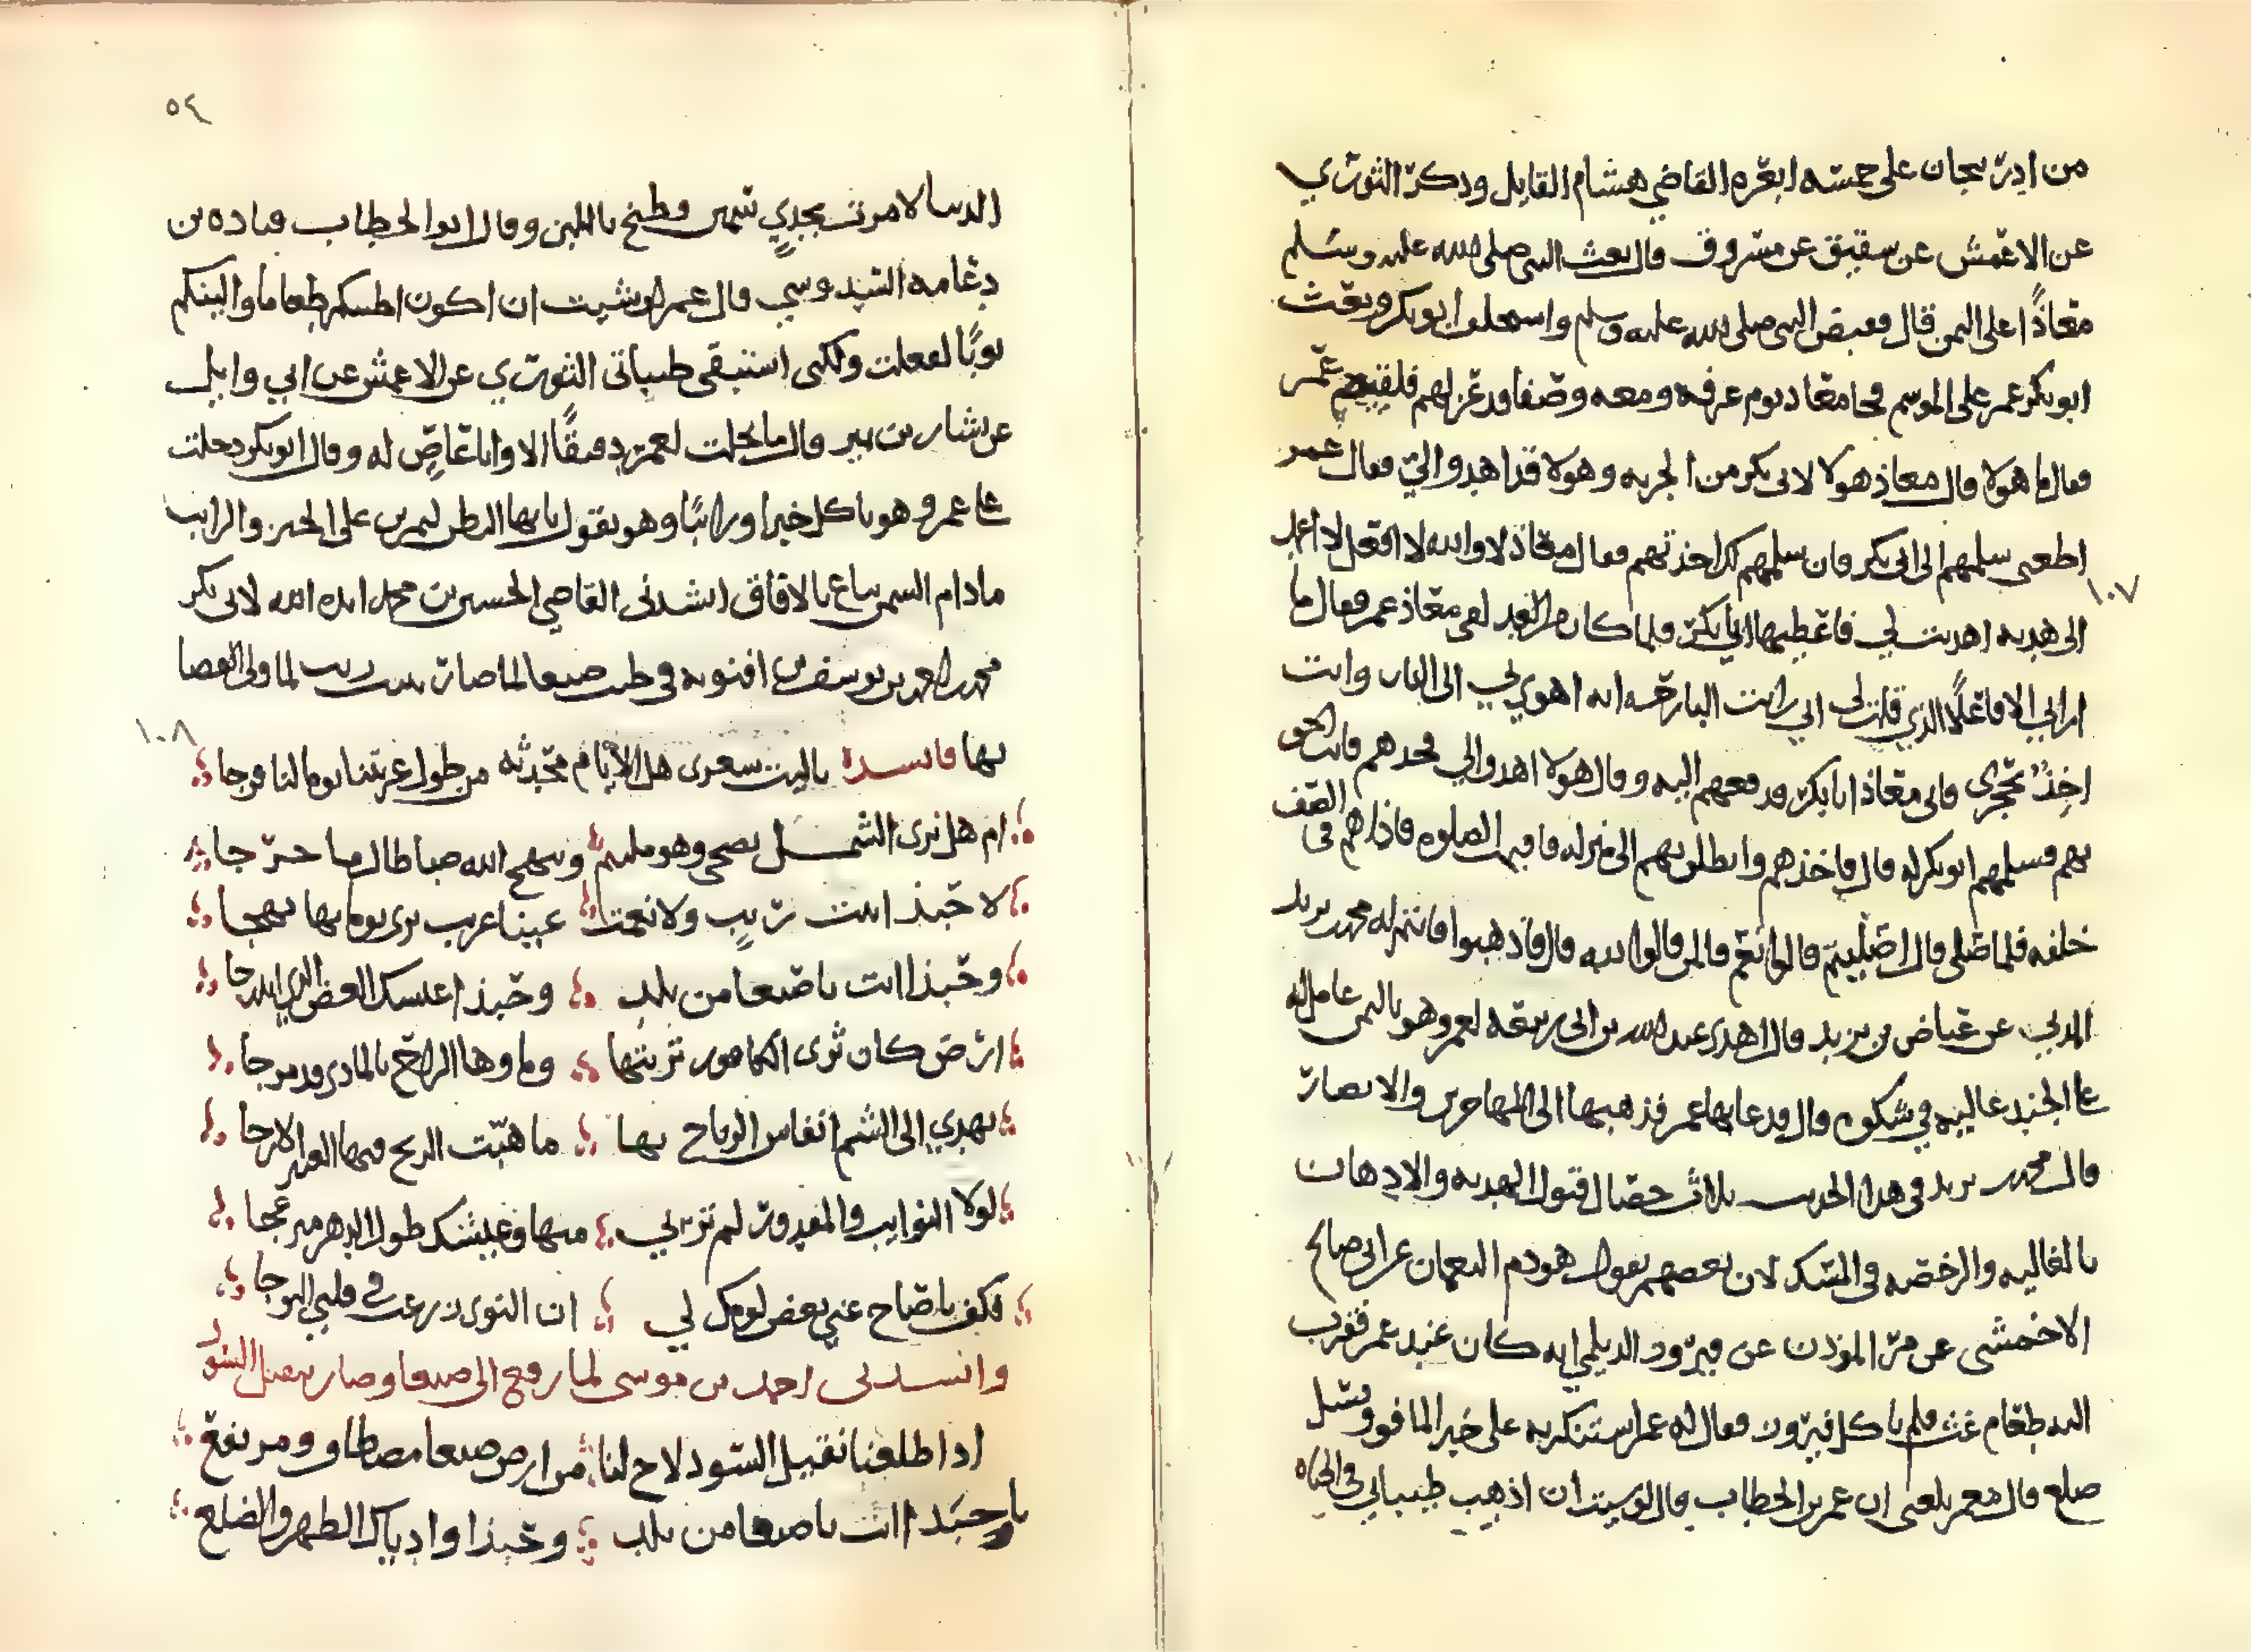 من ادربيجان على خمسه ابعره القاضي هشام القايل وذكر الثوري
عن الاعمش عن شقيق عن مسروق قال بعث النبي صلى الله عليه وسلم
معاذًا على اليمن قال فقبض النبي صلى الله عليه وسلم واستخلف ابو بكر وبعث
ابو بكر عمر على الموسم فجا معاذ يوم عرفه ومعه وصفا قد عزلهم فلقيهم عمر
فقال ما هولا قال معاذ هولا لابي بكر من الجزيه وهولا قد اهدوا الي فقال عمر
اطعني سلمهم الى ابي بكر فان سلمهم لك اخذتهم فقال معاذ لا والله لا افعل لا اعمد
١٠٧
الى هديه اهديت لي فاعطيها ابا بكر فلما كان من الغد لقي معاذ عمر فقال ما
اراني الا فاعلًا الذي قلت لي اني رايت البارحه انه اهوي بي الى النار وانت
اخذ بحجزي فاتى معاذ ابا بكر ودفعهم اليه وقال هولا اهدوا لي فخذهم فانت احق
بهم فسلمهم ابو بكر له قال فاخذهم وانطلق بهم الى منزله فاقيمت الصلوه فاذا هم في الصف
خلفه فلما صلى قال اصليتم قالوا نعم قال لمن قالوا لله قال فاذهبوا فانتم له محمد بن يزيد
المدني عن عياض بن يزيد قال اهدى عبد الله بن ابي ربيعه لعمر وهو باليمن عامل له
على الجند غاليه في شكوه قال فدعا بها عمر فذهبها الى المهاجرين والانصار
قال محمد بن يزيد في هذا الحديث ثلاث خصال قبول الهديه والادهان
بالغاليه والرخصه في المسك لان بعضهم يقول هو دم النعمان عن ابي صالح
الاخمشي عن مر الموذن عن فيروز الديلمي انه كان عند عمر فقرب
اليه طعام غث فلم ياكل فيروز فقال له عمر استنكر به على خير المافور وسل
صلع قال معمر بلغني ان عمر بن الخطاب قال لو شيت ان اذهب طيباتي في الحياه
٥٤
الدنيا لامرت بجدي سمين وطبخ باللبن وقال ابو الخطاب قتاده بن
دعامه السدوسي قال عمر لو شيت ان اكون اطيبكم طعاما والينكم
ثوبًا لفعلت ولكني استبقي طيباتي الثوري عن الاعمش عن ابي وايل
عن يسار بن نمير قال ما نخلت لعمر دقيقًا الا وانا عاصٍ له وقال ابو بكر دخلت
على عمر وهو ياكل خبزا ورائبًا وهو يقول يا ايها البطن لتمرنن على الخبز والرايب
مادام السمن يباع بالاواق انشدني القاضي الحسين بن محمد ايده الله لابي بكر
محمد بن احمد بن يوسف بن افنويه في طيب صنعا لما صار ببيت ريب لما ولي القضا
١٠٨
بها فانشده ياليت شعري هل الايام محدثه من طول غربتنا يوما لنا فرجا
ام هل نرى الشمل يضحي وهو ملتيم ويبهج الله صبا طال ما حرجا
لا حبذا انت ريب ولا نعمت عينا غريب يرى يوما بها بهجا
وحبذا انت يا صنعا من بلد وحبذا عيشك الغض الذي اندرجا
ارض كان ثرى الكافور تربتها وماوها الراح بالماذي قد مزجا
يهدي الى الشم انفاس الرياح بها ما هبت الريح فيها العنبر الارجا
لولا النوايب والمقدور لم ترني منها وعيشك طول الدهر منزعجا
فكف ياصاح عني بعض لومك لي ان النوى زرعت في قلبي الوجا
وانشدني احمد بن موسى لما رفع الى صنعا وصار بنقيل السود
اذا طلعنا نقيل السود لاح لنا من ارض صنعا مصطاف ومرتفع
يا حبذا انت يا صنعا من بلد وحبذا واديك الظهر والضلع